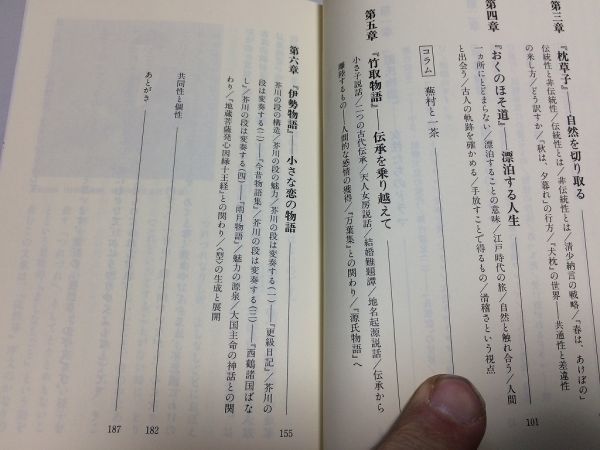 第三章 『枕草子』――自然を切り取る
伝統性と非伝統性／伝統性とは／非伝統性とは／清少納言の戦略／「春は、あけぼの」
の来し方／どう訳すか／「秋は、夕暮れ」の行方／『犬枕』の世界――共通性と差違性
第四章 『おくのほそ道』――漂泊する人生
101
一ヵ所にとどまらない／漂泊することの意味／江戸時代の旅／自然と触れ合う／人間
と出会う／古人の軌跡を確かめる／手放すことで得るもの／滑稽さという視点
コラム 蕪村と一茶
第五章 『竹取物語』――伝承を乗り越えて
小さ子説話／二つの古代伝承／天人女房説話／結婚難題譚／地名起源説話／伝承から
離陸するもの――人間的な感情の獲得／『万葉集』との関わり／『源氏物語』へ
第六章 『伊勢物語』――小さな恋の物語
155
芥川の段の構造／芥川の段の魅力／芥川の段は変奏する（一）――『更級日記』／芥川の
段は変奏する（二）――『今昔物語集』／芥川の段は変奏する（三）――『西鶴諸国ばな
し』／芥川の段は変奏する（四）――『雨月物語』／魅力の源泉／大国主命の神話との関
わり／『地蔵菩薩発心因縁十王経』との関わり／〈型〉の生成と展開
共同性と個性
182
あとがき
187